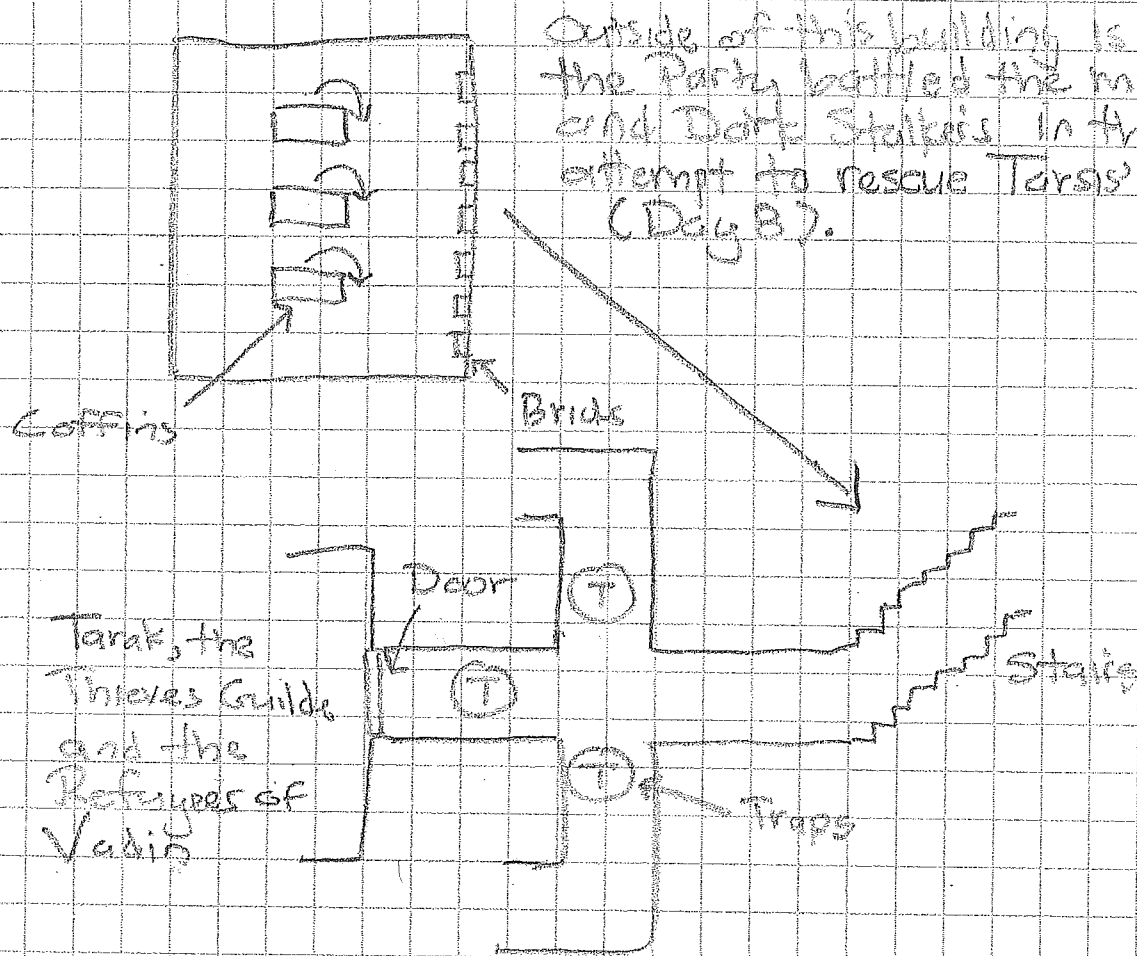 Outside of this building is
the Party battled the m
and Dark Stalkers in th
attempt to rescue Tarsis'
(Day 8).
Coffins
Bricks
Door
T
Tarak, the
Thieves Guilde
and the
Refugees of
Vadin
T
Stairs
T
Traps